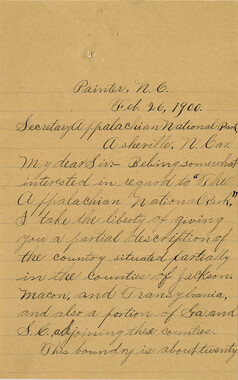 Painter, N.C.
Feb. 26, 1900.
Secretary Appalachian National Park
Asheville, N. Car.
My dear Sir:- Being somewhat
interested in regard to "The
Appalachian National Park,"
I take the liberty of giving
you a partial description of
the country situated partialy
in the counties of Jackson,
Macon, and Transylvania,
and also a portion of Ga. and
S.C. adjoining these counties.
This boundry is about twenty